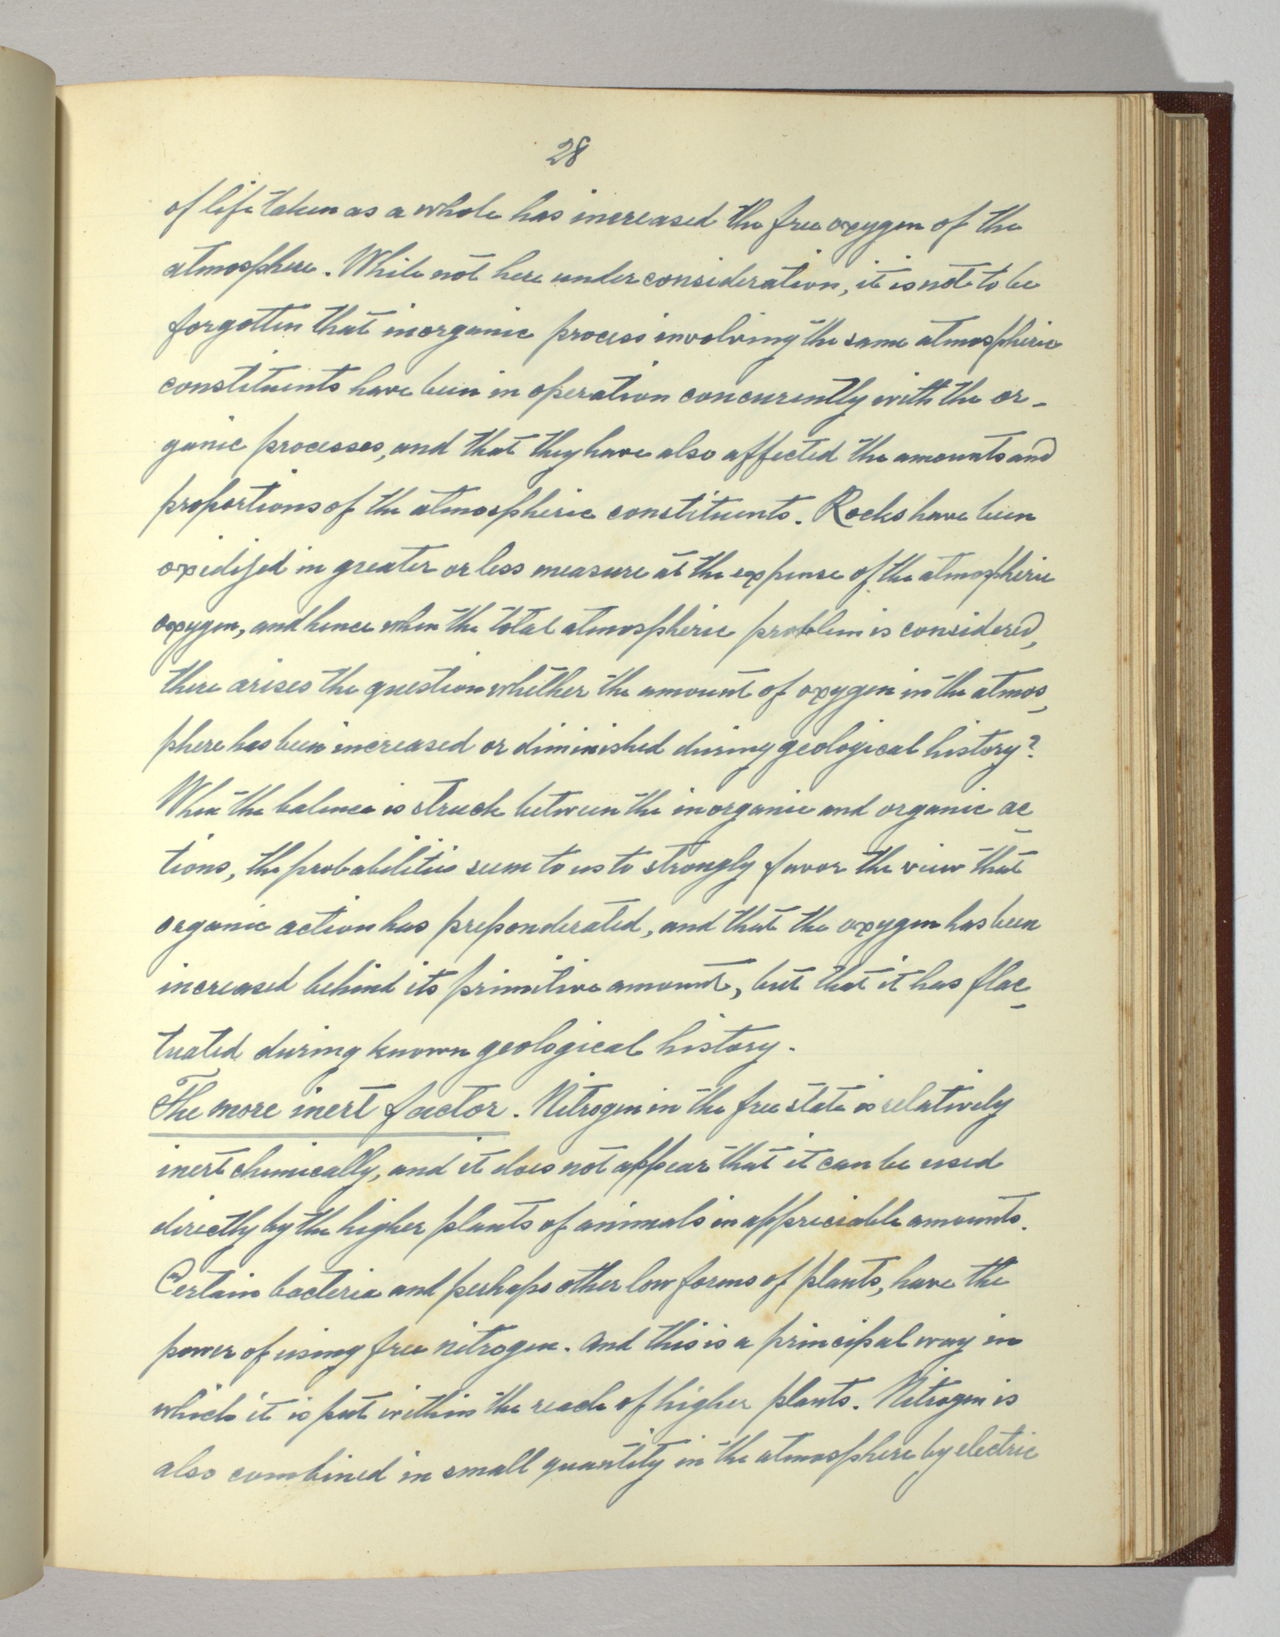 28
of life taken as a whole has increased the free oxygen of the
atmosphere. While not here under consideration, it is not to be
forgotten that inorganic process involving the same atmospheric
constituents have been in operation concurrently with the or-
ganic processes, and that they have also affected the amounts and
proportions of the atmospheric constituents. Rocks have been
oxidized in greater or less measure at the expense of the atmospheric
oxygen, and hence when the total atmospheric problem is considered,
there arises the question whether the amount of oxygen in the atmos-
phere has been increased or diminished during geological history?
When the balance is struck between the inorganic and organic ac-
tions, the probabilities seem to us to strongly favor the view that
organic action has preponderated, and that the oxygen has been
increased behind its primitive amount, but that it has fluc-
tuated during known geological history.
The more inert factor. Nitrogen in the free state is relatively
inert chemically, and it does not appear that it can be used
directly by the higher plants of animals in appreciable amounts.
Certain bacteria and perhaps other low forms of plants, have the
power of using free nitrogen. And this is a principal way in
which it is put within the reach of higher plants. Nitrogen is
also combined in small quantity in the atmosphere by electric